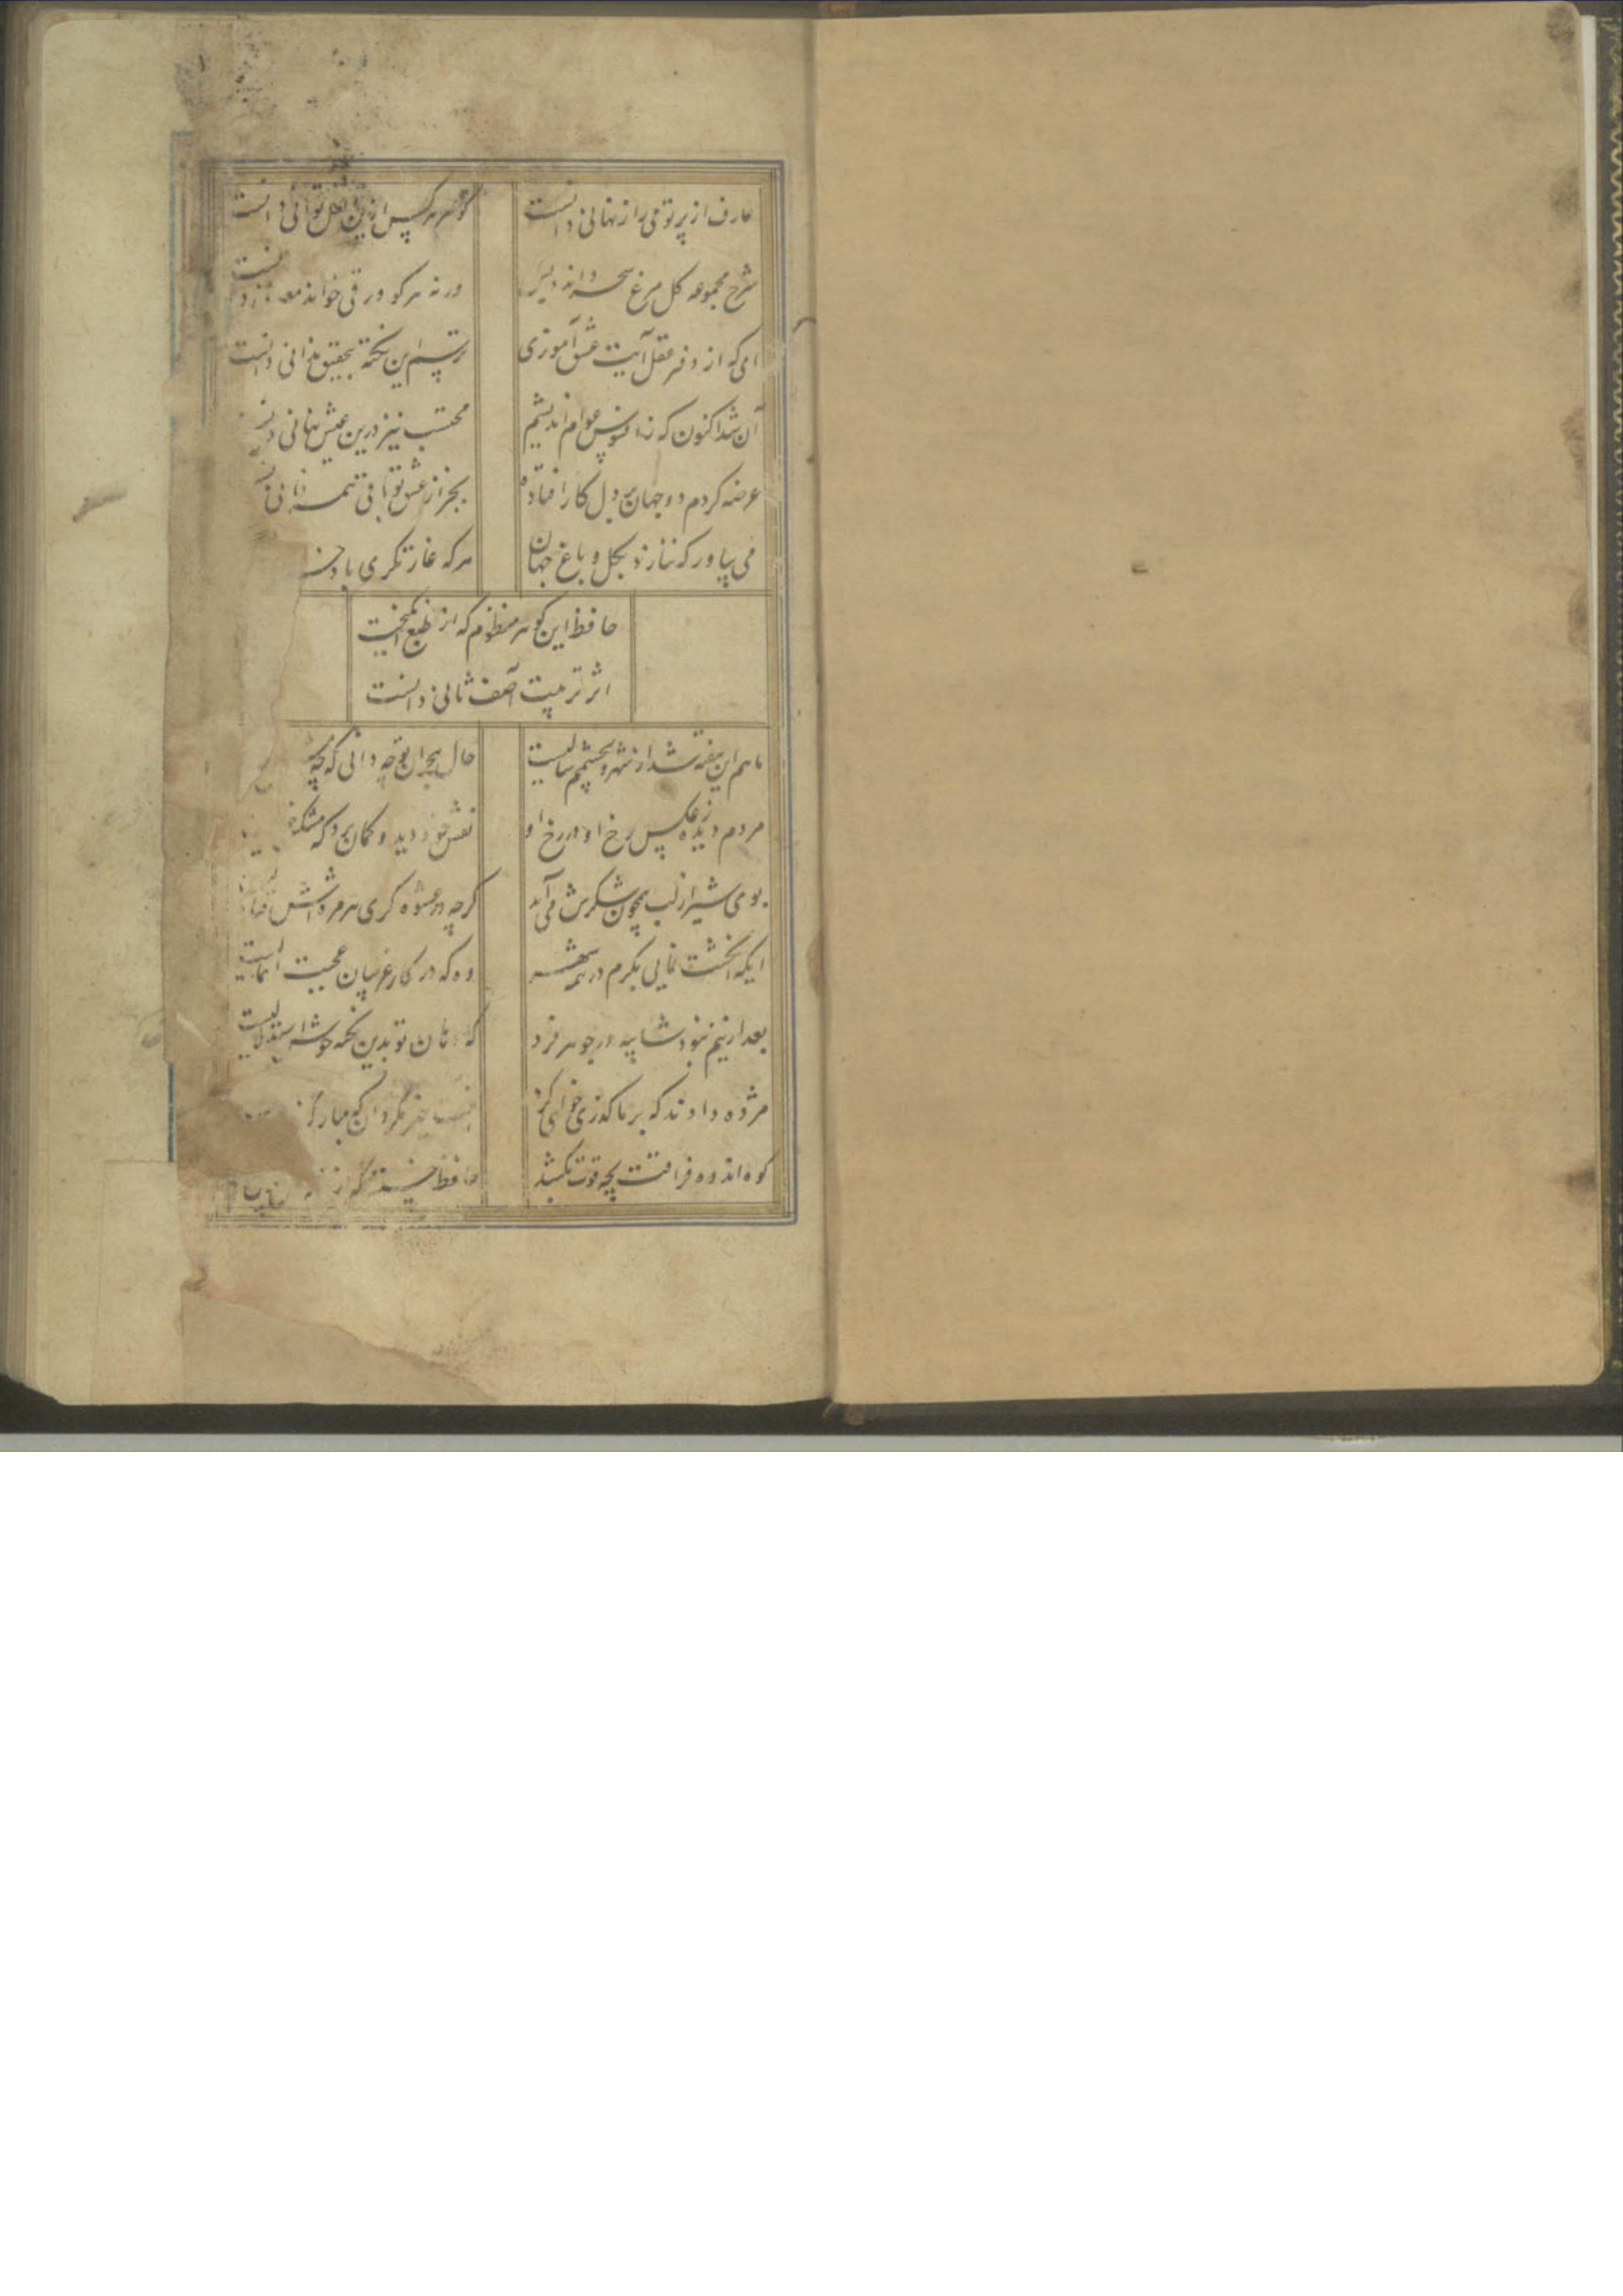 عارف از پرتو می راز نهانی دانست
گوهر هر کس ازین لعل توانی دانست
شرح مجموعه کل مرغ سحر داند و بس
ورنه هر کو ورقی خواند معانی دانست
ای که از دفتر عقل آیت عشق آموزی
ترسم این نکته بتحقیق ندانی دانست
آن شد اکنون که ز افسوس عوام اندیشم
محتسب نیز درین عیش نهانی دانست
عرضه کردم دو جهان بر دل کار افتاده
بجز از عشق تو باقی همه فانی
می بیاور که ننازد بگل و باغ جهان
هر که غارتگری باد
حافظ این گوهر منظوم که از طبع انگیخت
اثر تربیت آصف ثانی دانست
ماهم این هفته شد از شهر و بچشمم سالیست
حال هجران تو چه دانی که چه
مردم دیده ز عکس رخ او در رخ او
عکس خود دید و گمان برد که مشکین
بوی شیر از لب همچون شکرش می آید
گرچه در عشوه گری هر مژه اش
ایکه انگشت نمایی بکرم در همه شهر
وه که در کار غریبان عجبت اهمالیست
بعد ازینم نبود شایبه در جوهر فرد
که دهان تو بدین نکته خوش استدلالیست
مژده دادند که بر ما گذری خواهی کرد
نیت خیر مگردان که مبارک
کوه اندوه فراقت بچه قوت بکشد
حافظ خسته که از